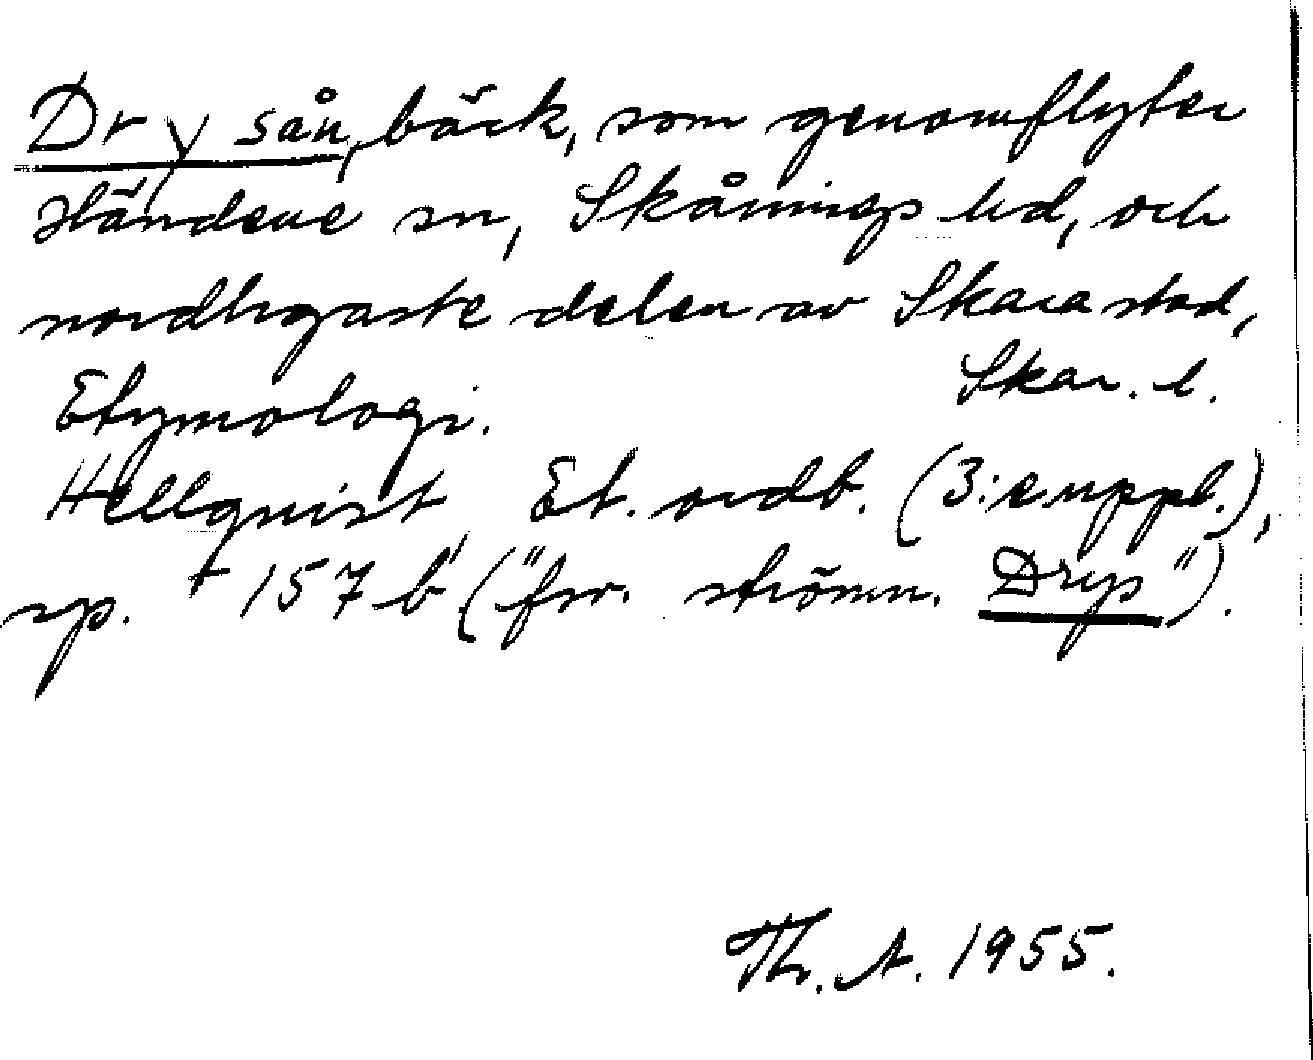 Drysån, bäck, som genomflyter
Händene sn, Skånings hd, och
nordligaste delen av Skara stad,
Skar. l.
Etymologi.
Hellquist, Et. ordb. (3:e uppl.),
sp. 157 b ("fsv. strömn. Drys").
Th. A. 1955.